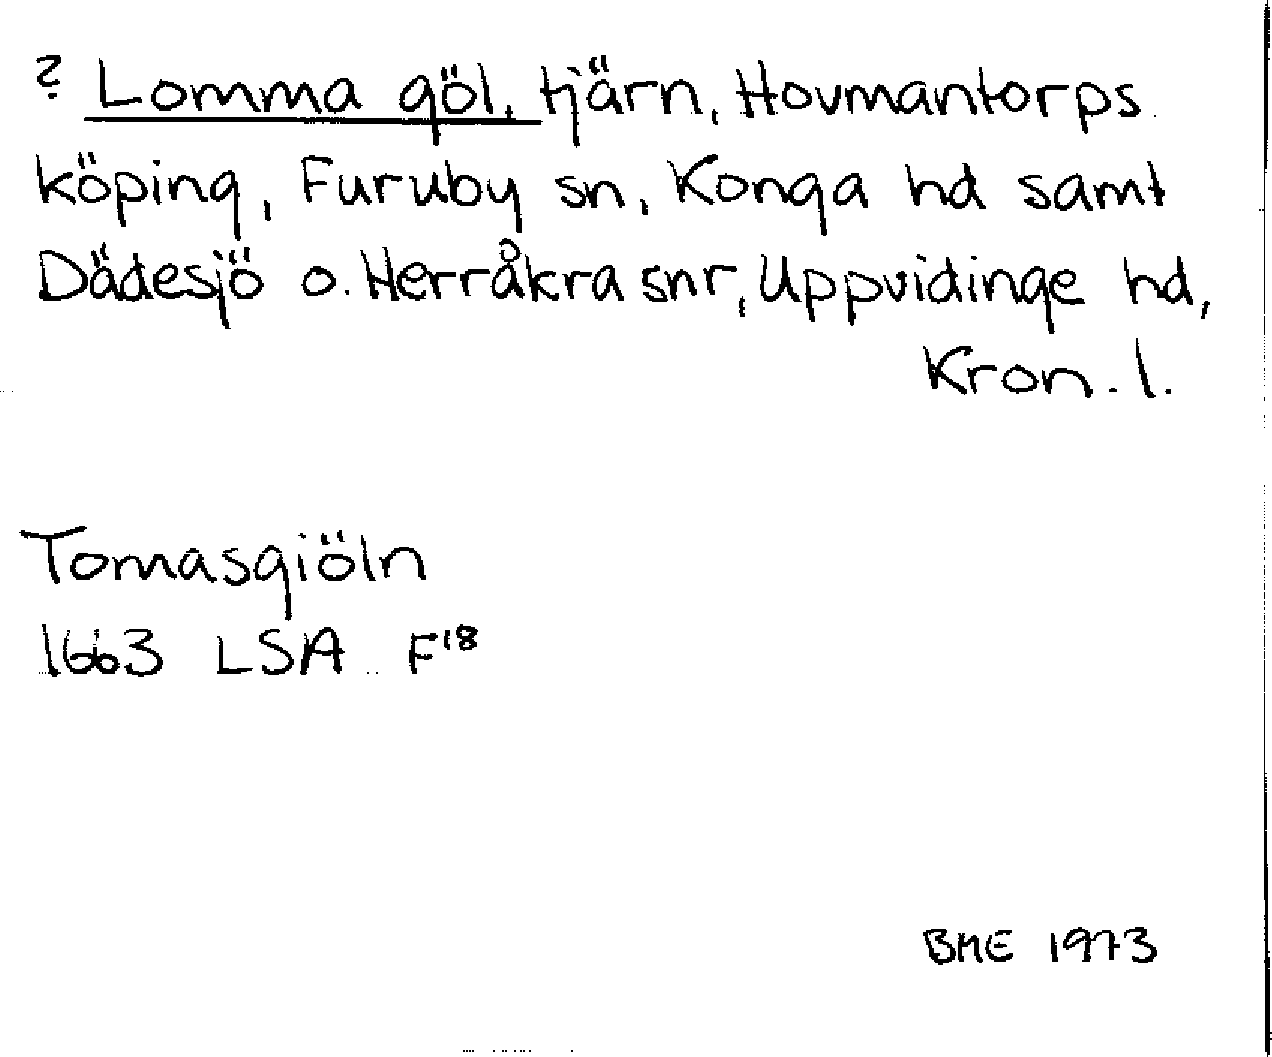 ? Lomma göl, tjärn, Hovmantorps
köping, Furuby sn, Konga hd samt
Dädesjö o. Herråkra snr, Uppvidinge hd,
Kron. l.
Tomasgiöln
1663 LSA F18
BME 1973